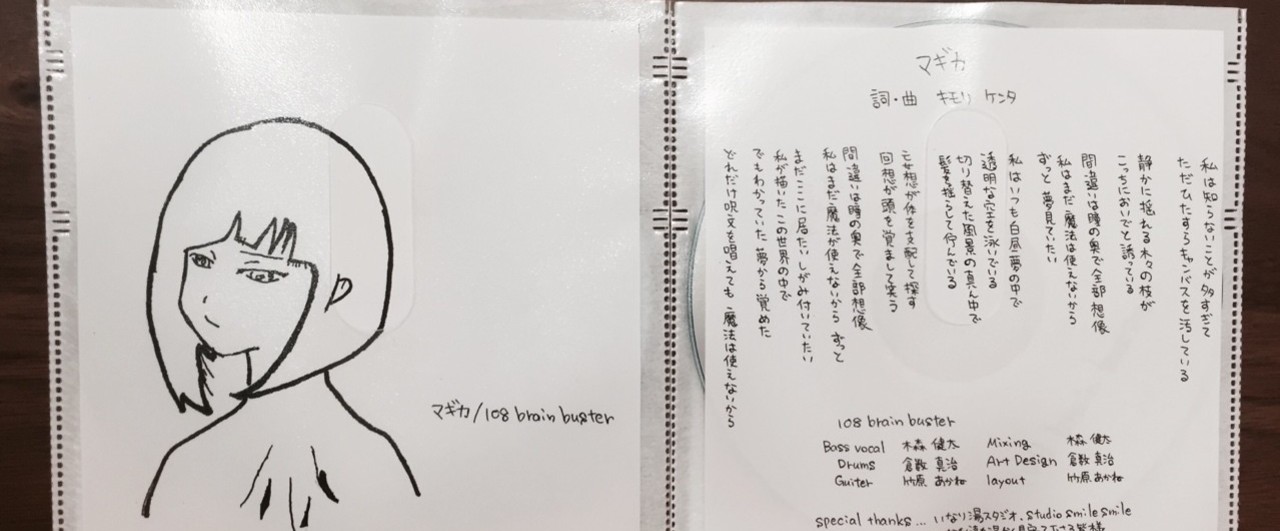 マギカ/108 brain buster
マギカ
詞・曲 キモリ ケンタ
私は知らないことが多すぎて
ただひたすらキャンバスを汚している
静かに揺れる木々の枝が
こっちにおいでと誘っている
間違いは瞳の奥で全部想像
私はまだ魔法は使えないから
ずっと夢見ていたい
私はいつも白昼夢の中で
透明な空を泳いでいる
切り替えた風景の真ん中で
髪を揺らして佇んでいる
妄想が体を支配して探す
回想が頭を覚まして笑う
間違いは瞳の奥で全部想像
私はまだ魔法が使えないから ずっと
まだここに居たい しがみ付いていたい
私が描いたこの世界の中で
でもわかっていた 夢から覚めた
どれだけ呪文を唱えても 魔法は使えないから
108 brain buster
Bass vocal 木森 健太 Mixing 木森 健太
Drums 倉敷 真治 Art Design 倉敷 真治
Guiter 竹原 あかね layout 竹原 あかね
special thanks... いなり湯スタジオ, studio smile smile